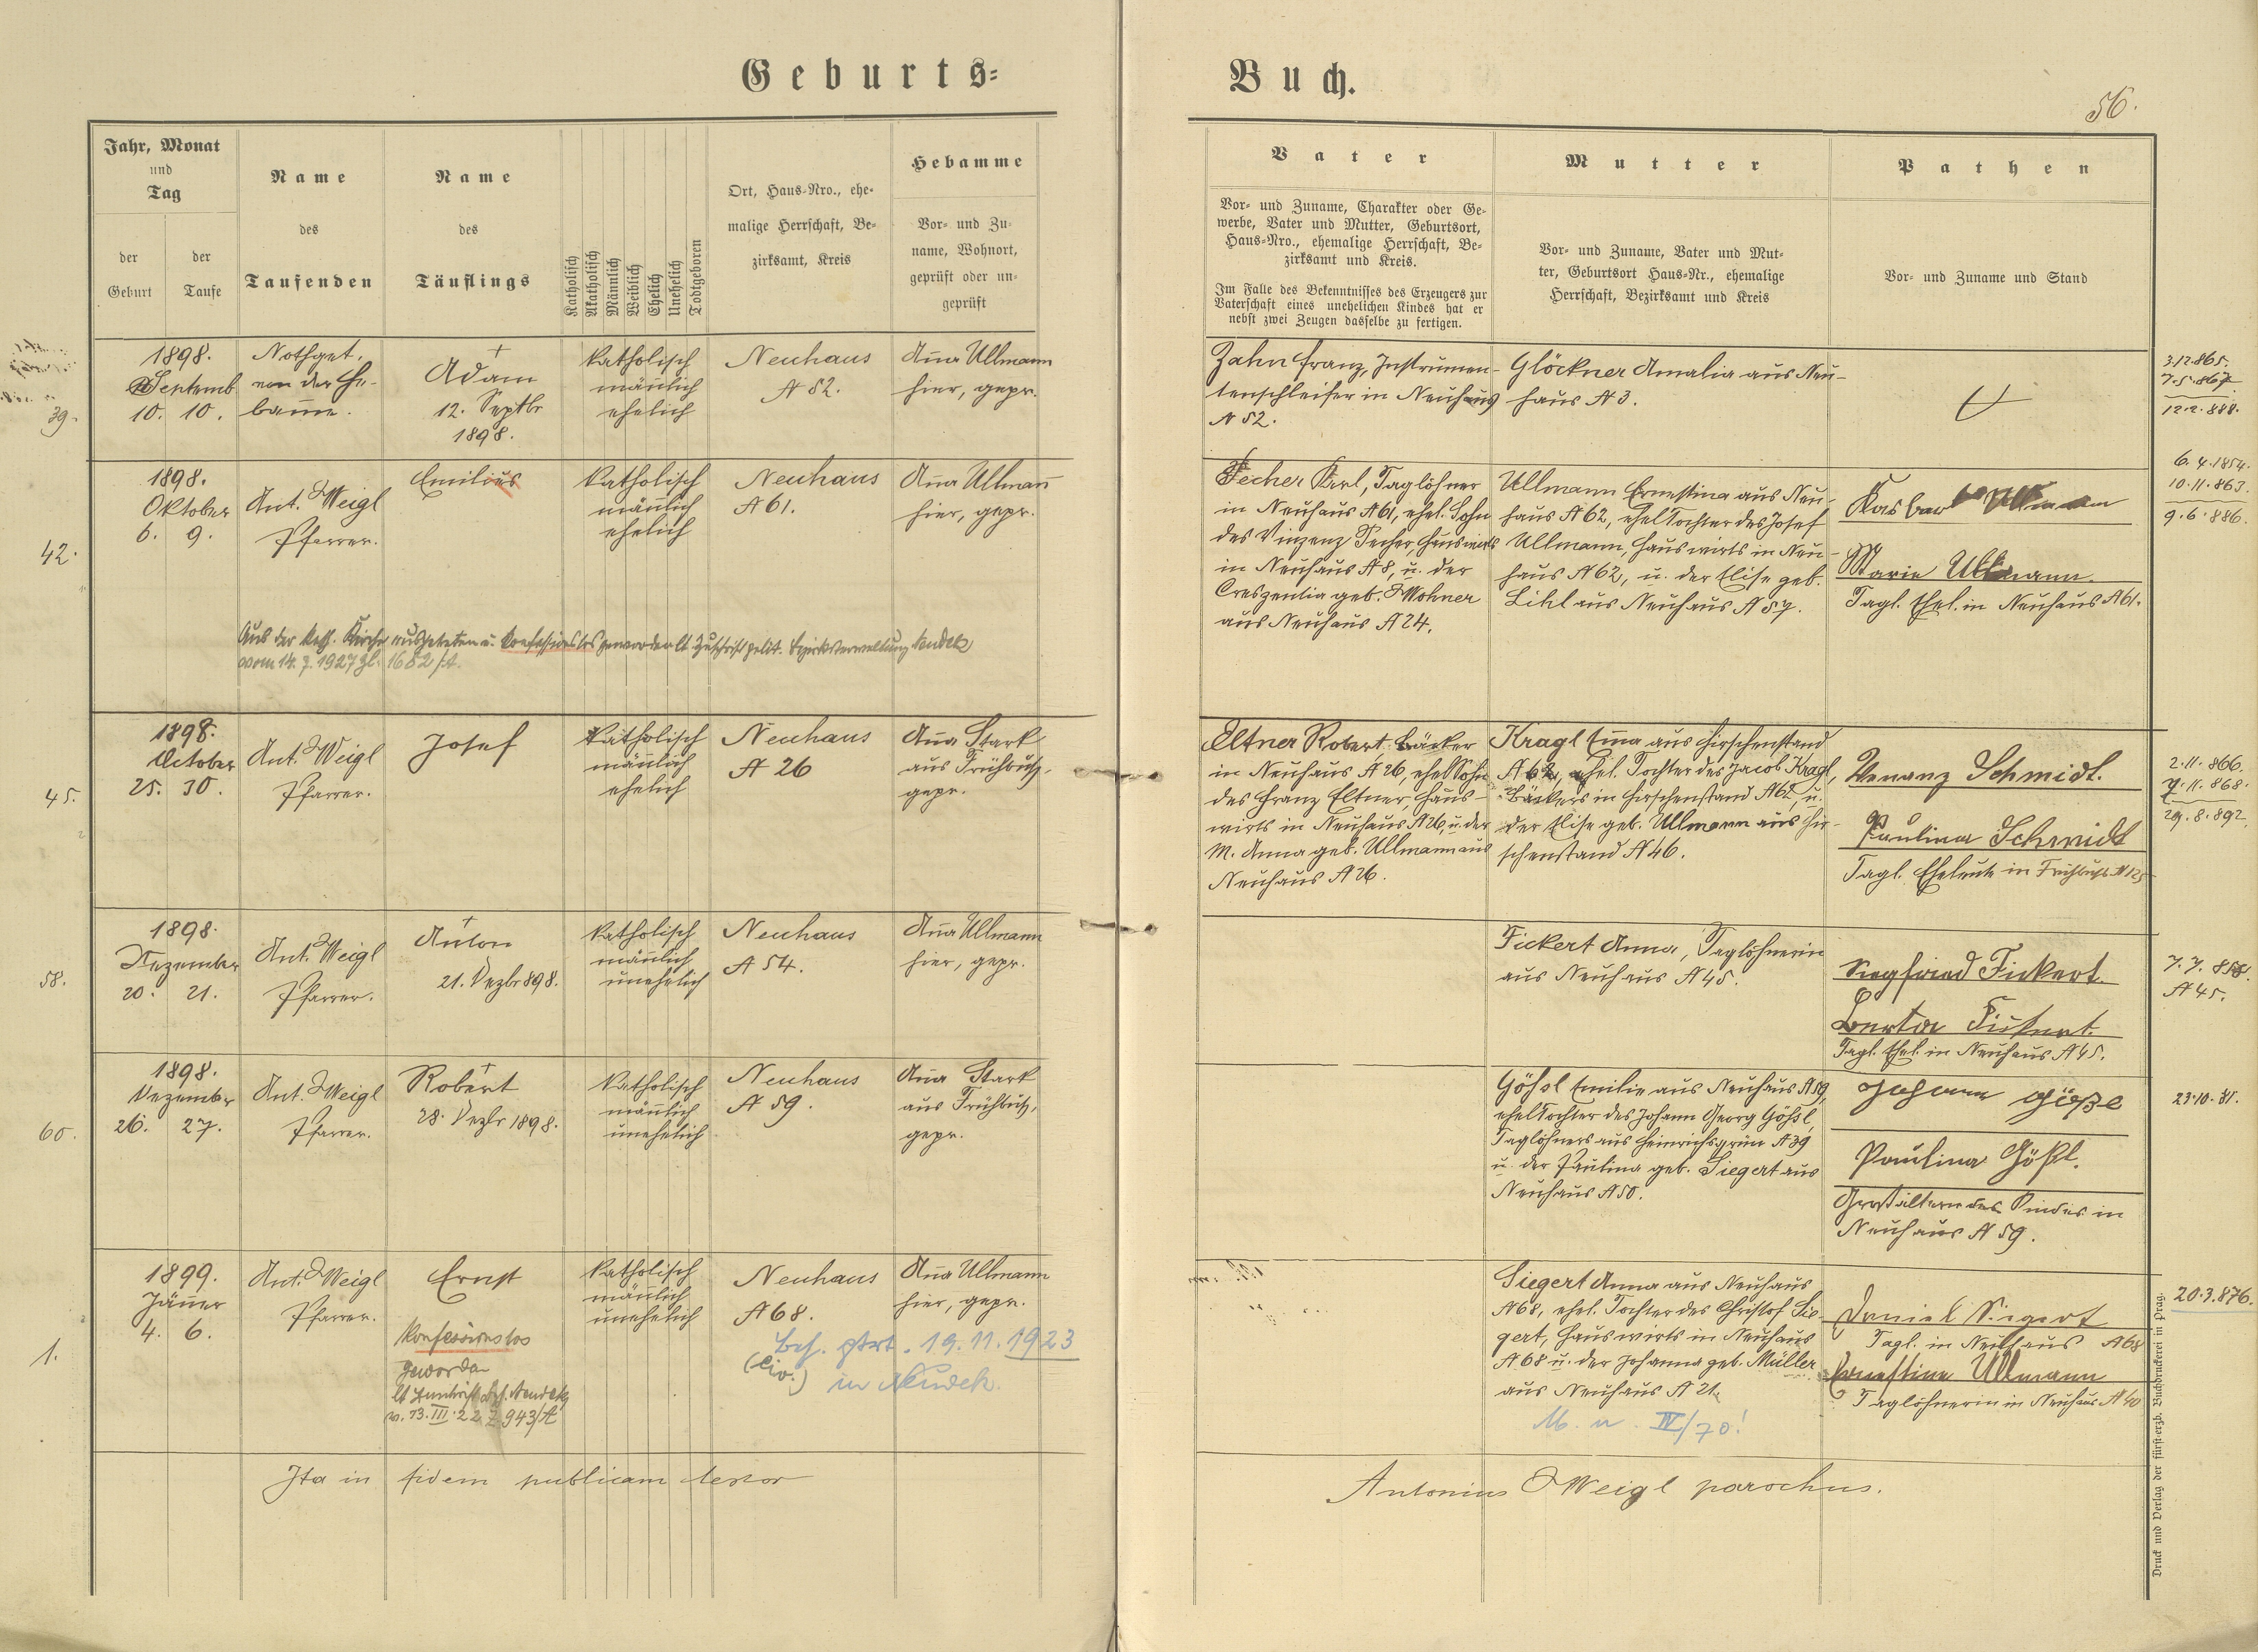 Geburts=
Buch.
56.
Jahr, Monat
und
Tag
der
Geburt
der
Taufe
Name
des
Taufenden
Name
des
Täuflings
Katholisch
Akatholisch
Männlich
Weiblich
Ehelich
Unehelich
Todtgeboren
Ort, Haus-Nro., ehe-
malige Herrschaft, Be-
zirksamt, Kreis
Hebamme
Vor- und Zu-
name, Wohnort,
geprüft oder un-
geprüft
Vater
Vor- und Zuname, Charakter oder Ge-
werbe, Vater und Mutter, Geburtsort,
Haus-Nro., ehemalige Herrschaft, Be-
zirksamt und Kreis.
Im Falle des Bekenntnisses des Erzeugers zur
Vaterschaft eines unehelichen Kindes hat er
nebst zwei Zeugen dasselbe zu fertigen.
Mutter
Vor- und Zuname, Vater und Mut-
ter, Geburtsort Haus-Nr., ehemalige
Herrschaft, Bezirksamt und Kreis
Pathen
Vor- und Zuname und Stand
39.
1898.
Septemb
10. 10.
Nothget.
von der He-
bamme.
Adam
12. Septbr
1898.
katholisch
männlich
ehelich
Neuhaus
N 52.
Anna Ullmann
hier, gepr.
Zahn Franz, Instrumen-
tenschleifer in Neuhaus
N 52.
Glöckner Amalia aus Neu-
haus N 3.
3.12.865.
7.5.867
12.2.888.
42.
1898.
Oktober
6. 9.
Ant. Weigl
Pfarrer.
Emilius
katholisch
männlich
ehelich
Neuhaus
N 61.
Anna Ullmann
hier, gepr.
Aus der kath. Kirche ausgetreten u. konfessionslos geworden lt. Zuschrift polit. Bezirksverwaltung Neudek
vom 14. 7. 1927 Zl. 1652/A.
Techer Karl, Taglöhner
in Neuhaus N 61, ehel. Sohn
des Vinzenz Techer, Hauswirts
in Neuhaus N 8, u. der
Creszentia geb. Wohner
aus Neuhaus N 24.
Ullmann Ernestina aus Neu-
haus N 62, ehel Tochter des Josef
Ullmann, Hauswirts in Neu-
haus N 62, u. der Elise geb.
Likl aus Neuhaus N 57.
Kaspar Ullmann
Marie Ullmann.
Tagl. Ehel. in Neuhaus N 61.
6.4.1854.
10.11.863.
9.6.886.
45.
1898.
October
25. 30.
Ant. Weigl
Pfarrer.
Josef
katholisch
männlich
ehelich
Neuhaus
N 26
Anna Stark
aus Frühbuß,
gepr.
Eltner Robert Bäcker
in Neuhaus N 26, ehel Sohn
des Franz Eltner, Haus-
wirts in Neuhaus N 26 u. der
M. Anna geb. Ullmann aus
Neuhaus N 26.
Kragl Emma aus Hirschenstand
N 62, ehel. Tochter des Jacob Kragl,
Bäckers in Hirschenstand N 62, u.
der Elise geb. Ullmann aus Hir-
schenstand N 46.
Venanz Schmidt.
Paulina Schmidt
Tagl. Eheleute in Frühbuß N 125
2.11.866.
7.11.868.
29.8.892.
58.
1898.
Dezember
20. 21.
Ant. Weigl
Pfarrer.
Anton
21. Dezbr 898.
katholisch
männlich
unehelich
Neuhaus
N 54.
Anna Ullmann
hier, gepr.
Fickert Anna, Taglöhnerin
aus Neuhaus N 45.
Siegfried Fickert.
Berta Fickert.
Tagl. Ehel. in Neuhaus N 45.
7.7.858.
N 45.
60.
1898.
Dezember
26. 27.
Ant. Weigl
Pfarrer.
Robert
28. Dezbr 1898.
katholisch
männlich
unehelich
Neuhaus
N 59.
Anna Stark
aus Frühbuß,
gepr.
Gößl Emilie aus Neuhaus N 59,
ehel Tochter des Johann Georg Gößl,
Taglöhners aus Heinrichsgrün N 39
u. der Paulina geb. Siegert aus
Neuhaus N 50.
Johann Gößl
Paulina Gößl.
Großältern des Kindes in
Neuhaus N 59.
23.10.81.
1.
1899.
Jänner
4. 6.
Ant. Weigl
Pfarrer.
Ernst
konfessionslos
geworden
lt Zuschrift Bzh. Neudek
v. 13. III. 22 Z 943/A
katholisch
männlich
unehelich
Neuhaus
N 68.
Anna Ullmann
hier, gepr.
19.11.1923
(Civ.) in Neudek.
Siegert Anna aus Neuhaus
N 68, ehel. Tochter des Christof Sie-
gert, Hauswirts in Neuhaus
N 68 u. der Johanna geb. Müller
aus Neuhaus N 21.
IV/70!
Daniel Siegert
Tagl. in Neuhaus N 68
Ernestine Ullmann
Taglöhnerin in Neuhaus N 40
20.3.876.
Ita in fidem publicam testor
Antonius Weigl parochus.
Druck und Verlag der fürst-erzb. Buchdruckerei in Prag.